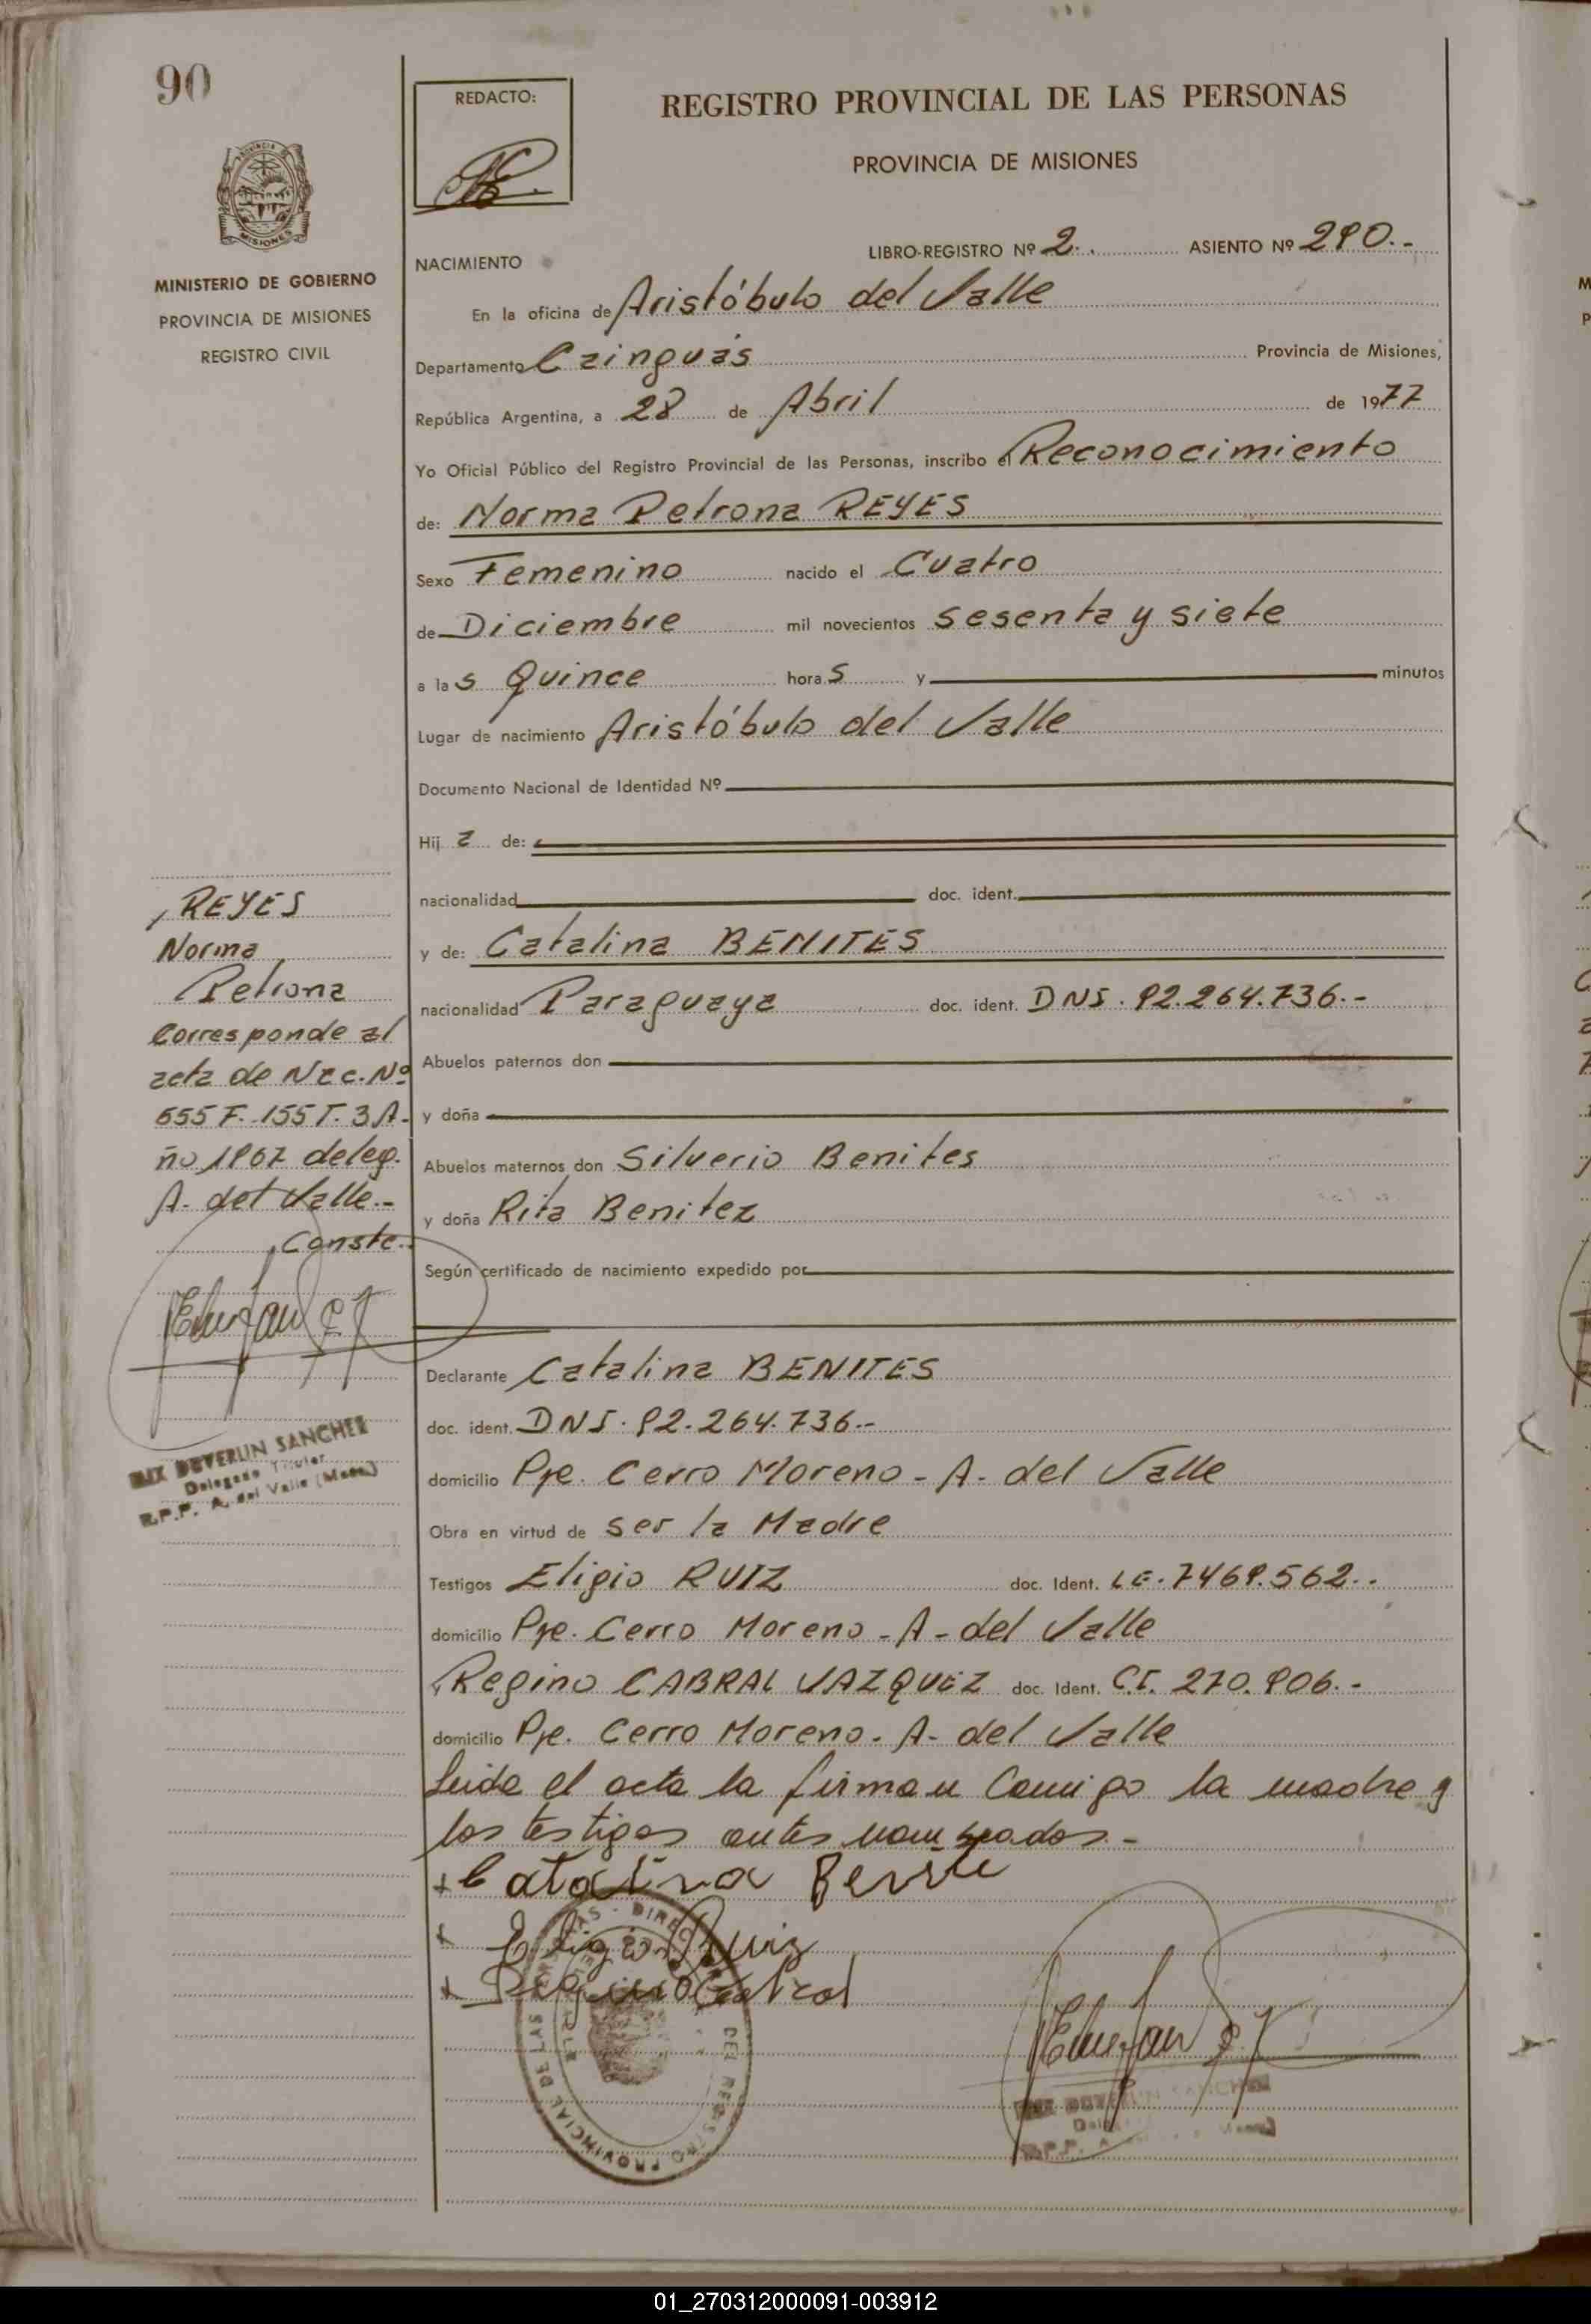 90
REDACTO:
REGISTRO PROVINCIAL DE LAS PERSONAS
PROVINCIA DE MISIONES
MISIONES
MINISTERIO DE GOBIERNO
PROVINCIA DE MISIONES
REGISTRO CIVIL
LIBRO-REGISTRO Nº 2. ASIENTO Nº 290.-
NACIMIENTO
En la oficina de Aristóbulo del Valle
Departamento Cainguás Provincia de Misiones,
República Argentina, a 28 de Abril de 1977
Yo Oficial Público del Registro Provincial de las Personas, inscribo el Reconocimiento
de: Norma Petrona REYES
Sexo Femenino nacido el Cuatro
de Diciembre mil novecientos sesenta y siete
a las Quince horas y minutos
Lugar de nacimiento Aristóbulo del Valle
Documento Nacional de Identidad Nº
Hija de:
nacionalidad doc. ident.
y de: Catalina BENITES
nacionalidad Paraguaya doc. ident. DNI. 92.264.736.-
Abuelos paternos don
y doña
Abuelos maternos don Silverio Benites
y doña Rita Benitez
Según certificado de nacimiento expedido por
REYES
Norma
Petrona
Corresponde al
acta de Nac. Nº
655 F. 155 T. 3 A-
ño 1967 deleg.
A. del Valle.-
Conste.
DEVERLIN SANCHEZ
Delegado Titular
R.P.P. A. del Valle (Mnes.)
Declarante Catalina BENITES
doc. ident. DNI. 92.264.736.-
domicilio Pje. Cerro Moreno - A. del Valle
Obra en virtud de ser la Madre
Testigos Eligio RUIZ doc. Ident. LE. 7469.562.-
domicilio Pje. Cerro Moreno - A- del Valle
y Regino CABRAL VAZQUEZ doc. Ident. C.I. 270.906.-
domicilio Pje. Cerro Moreno. A- del Valle
Leida el acta la firman Comigo la madre y
los testigos antes nombrados.-
+ Catalina
+ Eligio Ruiz
+ Regino Cabral
REGISTRO PROVINCIAL DE LAS
01_270312000091-003912